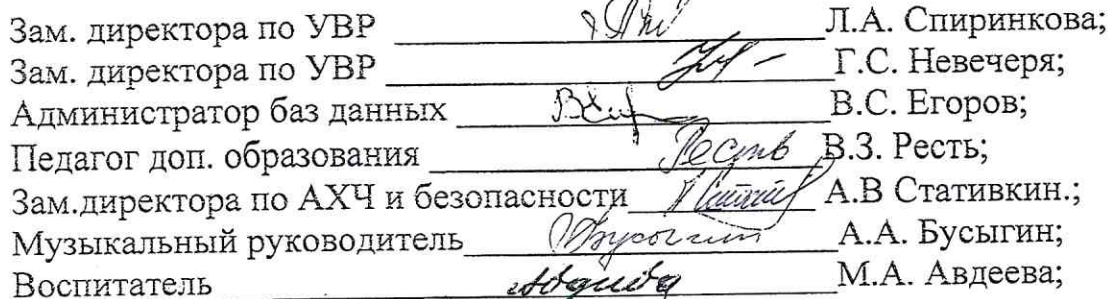 Зам. директора по УВР Л.А. Спиринкова;
Зам. директора по УВР Г.С. Невечеря;
Администратор баз данных В.С. Егоров;
Педагог доп. образования Ресть В.З. Ресть;
Зам.директора по АХЧ и безопасности А.В Стативкин.;
Музыкальный руководитель А.А. Бусыгин;
Воспитатель М.А. Авдеева;